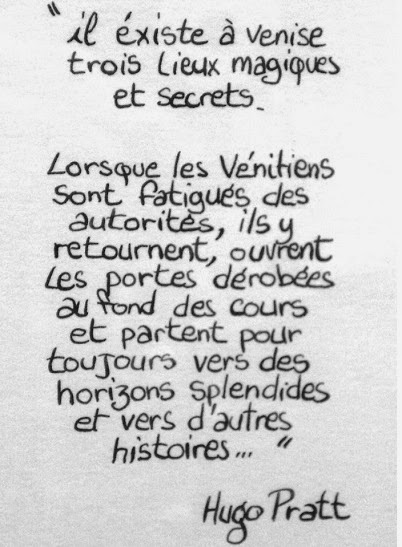 "il éxiste à venise
trois lieux magiques
et secrets.
Lorsque les Vénitiens
sont fatigués des
autorités, ils y
retournent, ouvrent
les portes dérobées
au fond des cours
et partent pour
toujours vers des
horizons splendides
et vers d'autres
histoires... "
Hugo Pratt